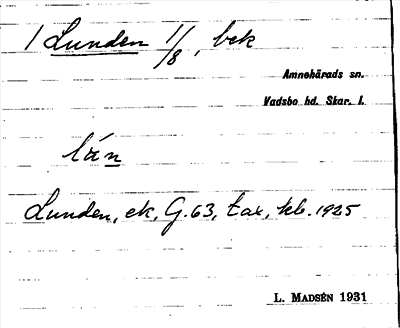 1 Lunden 1/8, bek
Amnehärads sn.
Vadsbo hd. Skar. l.
lán
Lunden, ek, G.63, tax, kb. 1925
L. MADSÉN 1931